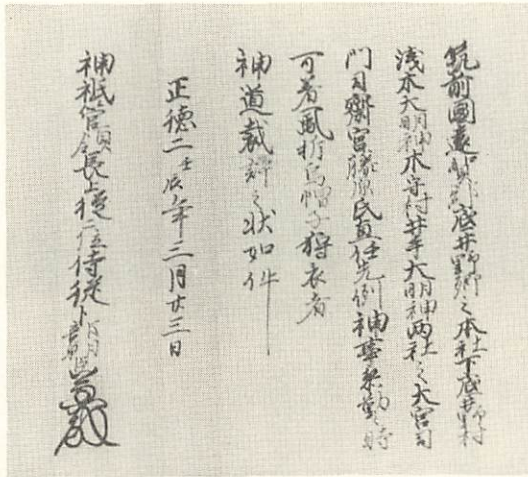 筑前國遠賀郡底井野郷之本社下底井野村
浅木大明神木守村井手大明神両社之大宮司
門司齋宮藤原氏直任先例神事参勤之時
可着風折烏帽子狩衣者
神道裁許之状如件
正徳二壬辰年三月廿三日
神祇管領長上従二位侍従卜部朝臣